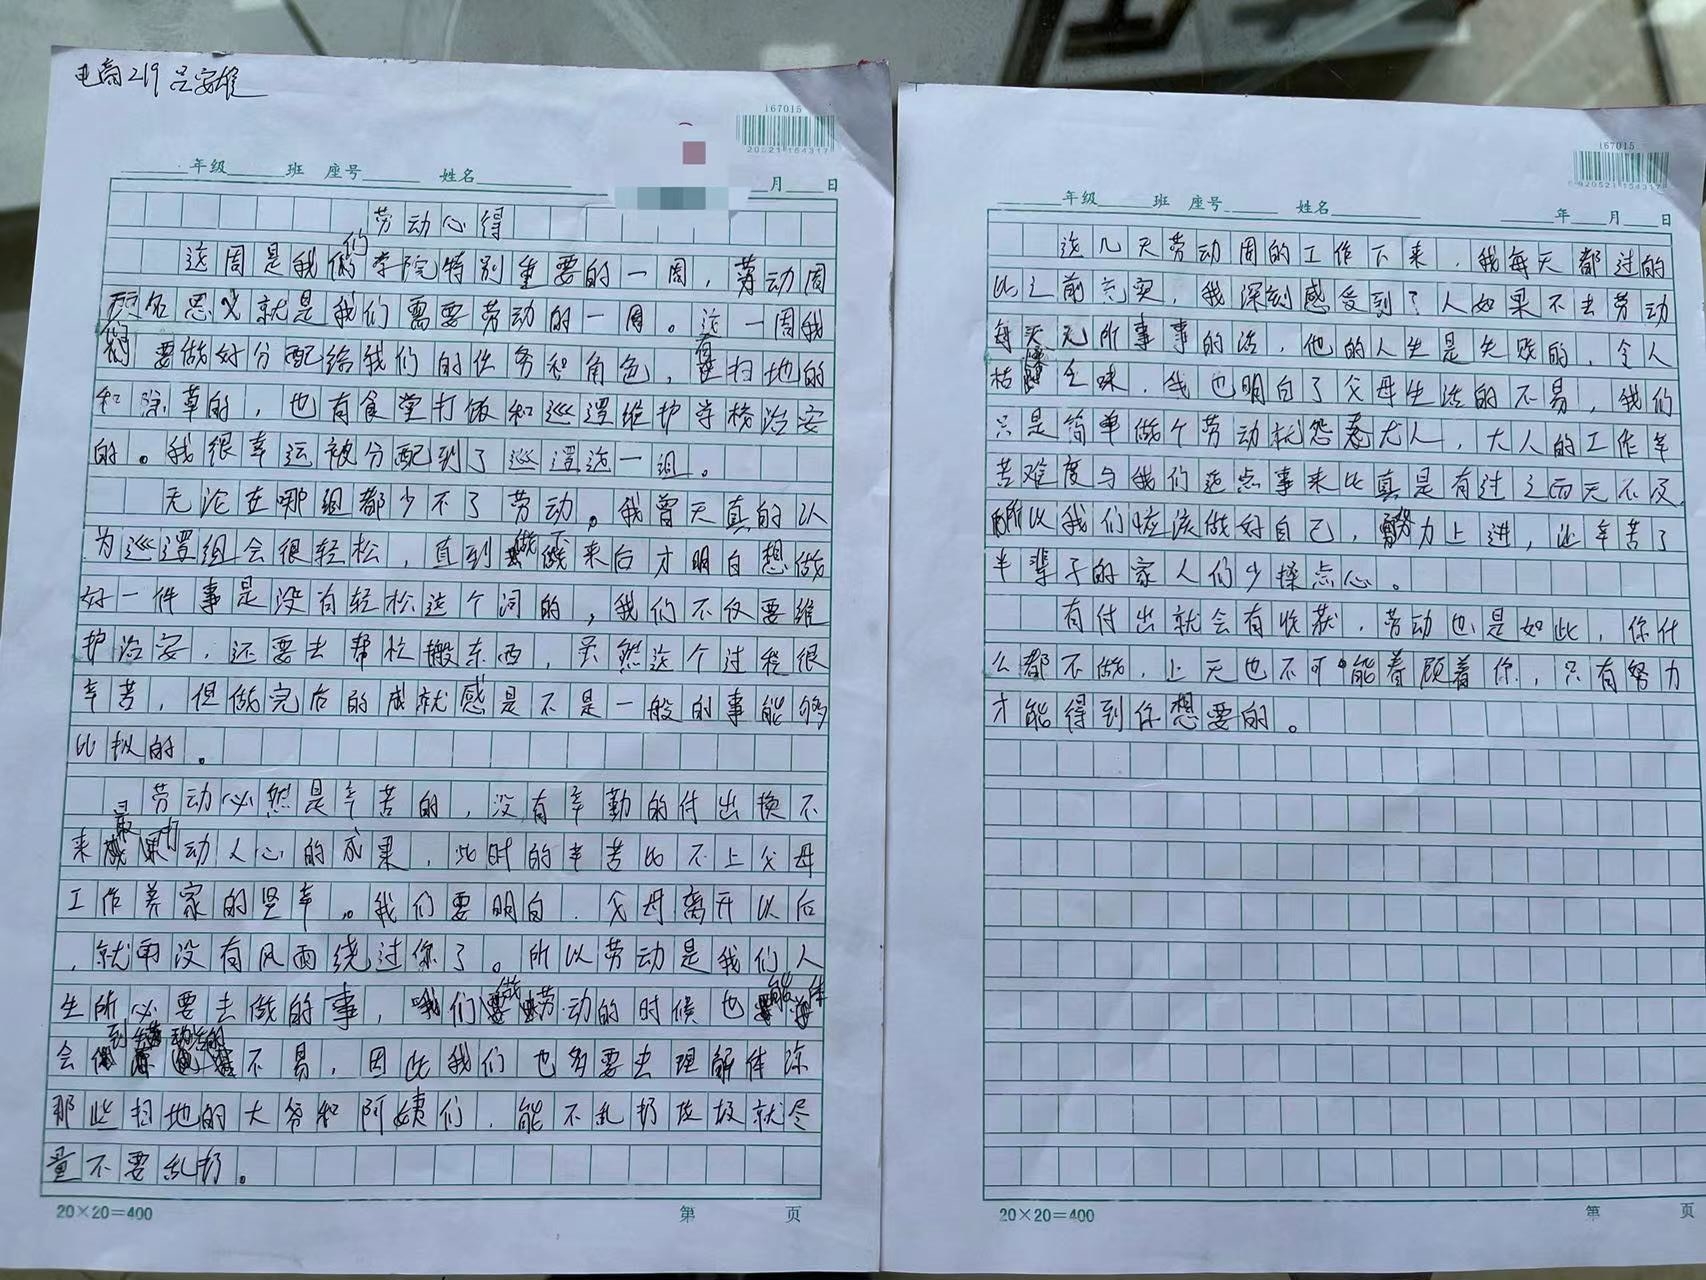 电商219 吕安雄
167015
20521 164317
年级 班 座号 姓名 月 日
劳动心得
这周是我们学院特别重要的一周，劳动周
顾名思义就是我们需要劳动的一周。这一周我
们要做好分配给我们的任务和角色，有扫地的
和除草的，也有食堂打饭和巡逻维护学校治安
的。我很幸运被分配到了巡逻这一组。
无论在哪组都少不了劳动。我曾天真的以
为巡逻组会很轻松，直到做下来后才明白想做
好一件事是没有轻松这个词的，我们不仅要维
护治安，还要去帮忙搬东西，虽然这个过程很
辛苦，但做完后的成就感是不是一般的事能够
比拟的。
劳动必然是辛苦的，没有辛勤的付出换不
来最打动人心的成果，此时的辛苦比不上父母
工作养家的艰辛。我们要明白，父母离开以后
，就再没有风雨绕过你了。所以劳动是我们人
生所必要去做的事，我们做劳动的时候也能体
会到劳动者的不易，因此我们也多要去理解体谅
那些扫地的大爷和阿姨们，能不乱扔垃圾就尽
量不要乱扔。
20×20=400 第 页
167015
920521 154317
年级 班 座号 姓名 年 月 日
这几天劳动周的工作下来，我每天都过的
比之前充实，我深刻感受到了人如果不去劳动
每天无所事事的活，他的人生是失败的，令人
枯燥乏味，我也明白了父母生活的不易，我们
只是简单做个劳动就怨天尤人，大人的工作辛
苦难度与我们这点事来比真是有过之而无不及
所以我们应该做好自己，努力上进，让辛苦了
半辈子的家人们少操点心。
有付出就会有收获，劳动也是如此，你什
么都不做，上天也不可能眷顾着你，只有努力
才能得到你想要的。
20×20=400 第 页